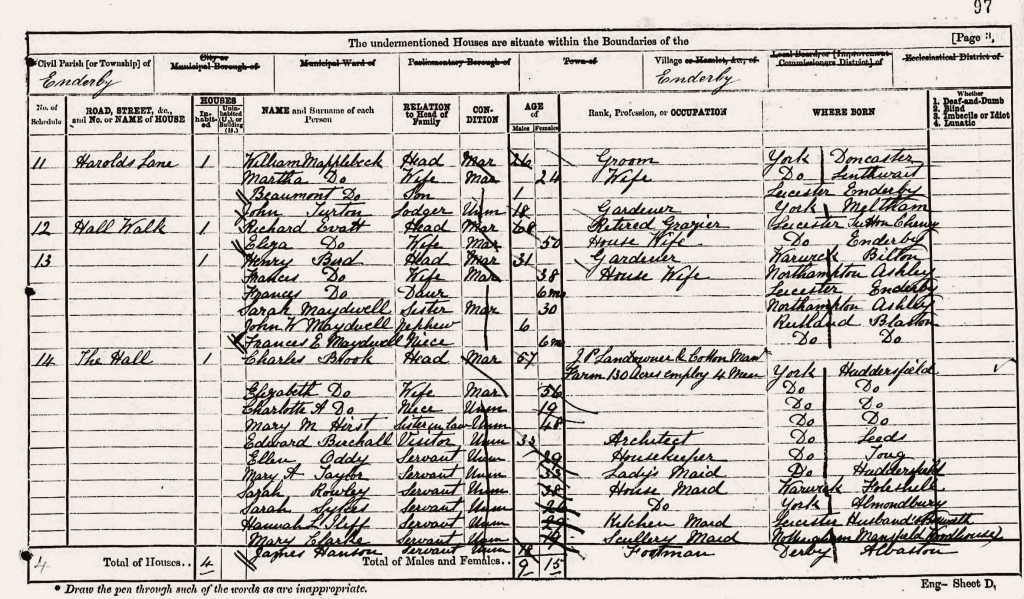 97
The undermentioned Houses are situate within the Boundaries of the [Page 3,
Civil Parish [or Township] of City or Municipal Borough of Municipal Ward of Parliamentary Borough of Town of Village or Hamlet, &c., of Local Board, or [Improvement Commissioners District] of Ecclesiastical District of
Enderby Enderby
No. of Schedule ROAD, STREET, &c., and No. or NAME of HOUSE HOUSES Inhabited Uninhabited (U.), or Building (B.) NAME and Surname of each Person RELATION to Head of Family CONDITION AGE of Males Females Rank, Profession, or OCCUPATION WHERE BORN Whether 1. Deaf-and-Dumb 2. Blind 3. Imbecile or Idiot 4. Lunatic
11 Harolds Lane 1 William Mapplebeck Head Mar 26 Groom York Doncaster
Martha Do Wife Mar 24 Wife Do Linthwait
Beaumont Do Son 1 Leicester Enderby
John Turton Lodger Unm 18 Gardener York Meltham
12 Hall Walk 1 Richard Evatt Head Mar 68 Retired Grazier Leicester Sutton Cheney
Eliza Do Wife Mar 50 House Wife Do Enderby
13 1 Henry Bird Head Mar 31 Gardener Warwick Bilton
Frances Do Wife Mar 38 House Wife Northampton Ashley
Frances Do Daur 6 mo Leicester Enderby
Sarah Maydwell Sister Mar 30 Northampton Ashley
John W Maydwell Nephew 6 Rutland Blaston
Frances E Maydwell Niece 6 mo Do Do
14 The Hall 1 Charles Brook Head Mar 57 J.P. Landowner & Cotton Man
Farm 130 Acres employ 4 Men York Huddersfield
Elizabeth Do Wife Mar 56 Do Do
Charlotte A Do Niece Unm 19 Do Do
Mary M Hirst Sister in Law Unm 48 Do Do
Edward Birchall Visitor Unm 32 Architect Do Leeds
Ellen Oddy Servant Unm 29 Housekeeper Do Tong
Mary A Taylor Servant Unm 33 Lady's Maid Do Huddersfield
Sarah Rowley Servant Unm 38 House Maid Warwick Foleshill
Sarah Sykes Servant Unm Do York Almondbury
Hannah L Iliff Servant Unm Kitchen Maid Leicester Husbands Bosworth
Mary Clarke Servant Unm Scullery Maid Nottingham Mansfield Woodhouse
James Hanson Servant Unm 18 Footman Derby Alvaston
4 Total of Houses.. 4 Total of Males and Females.. 9 15
* Draw the pen through such of the words as are inappropriate. Eng- Sheet D,